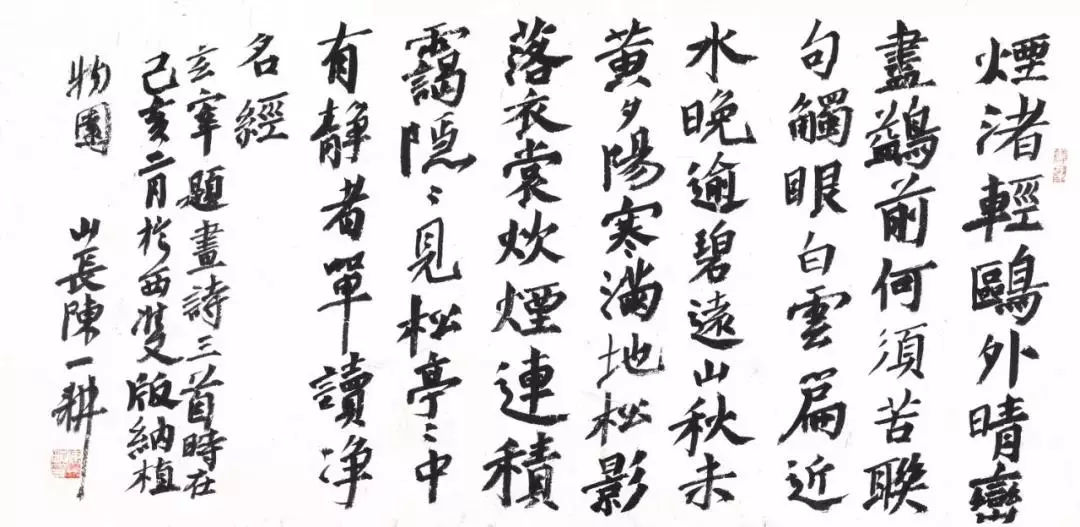 煙渚輕鷗外晴巒
畫鷁前何須苦聯
句觸眼白雲篇近
水晚逾碧遠山秋未
黄夕陽寒滿地松影
落衣裳炊煙連積
靄隱〻見松亭〻中
有静者單讀净
名經
玄宰題畫詩三首時在
己亥二月於西雙版納植
物園 山長陳一耕